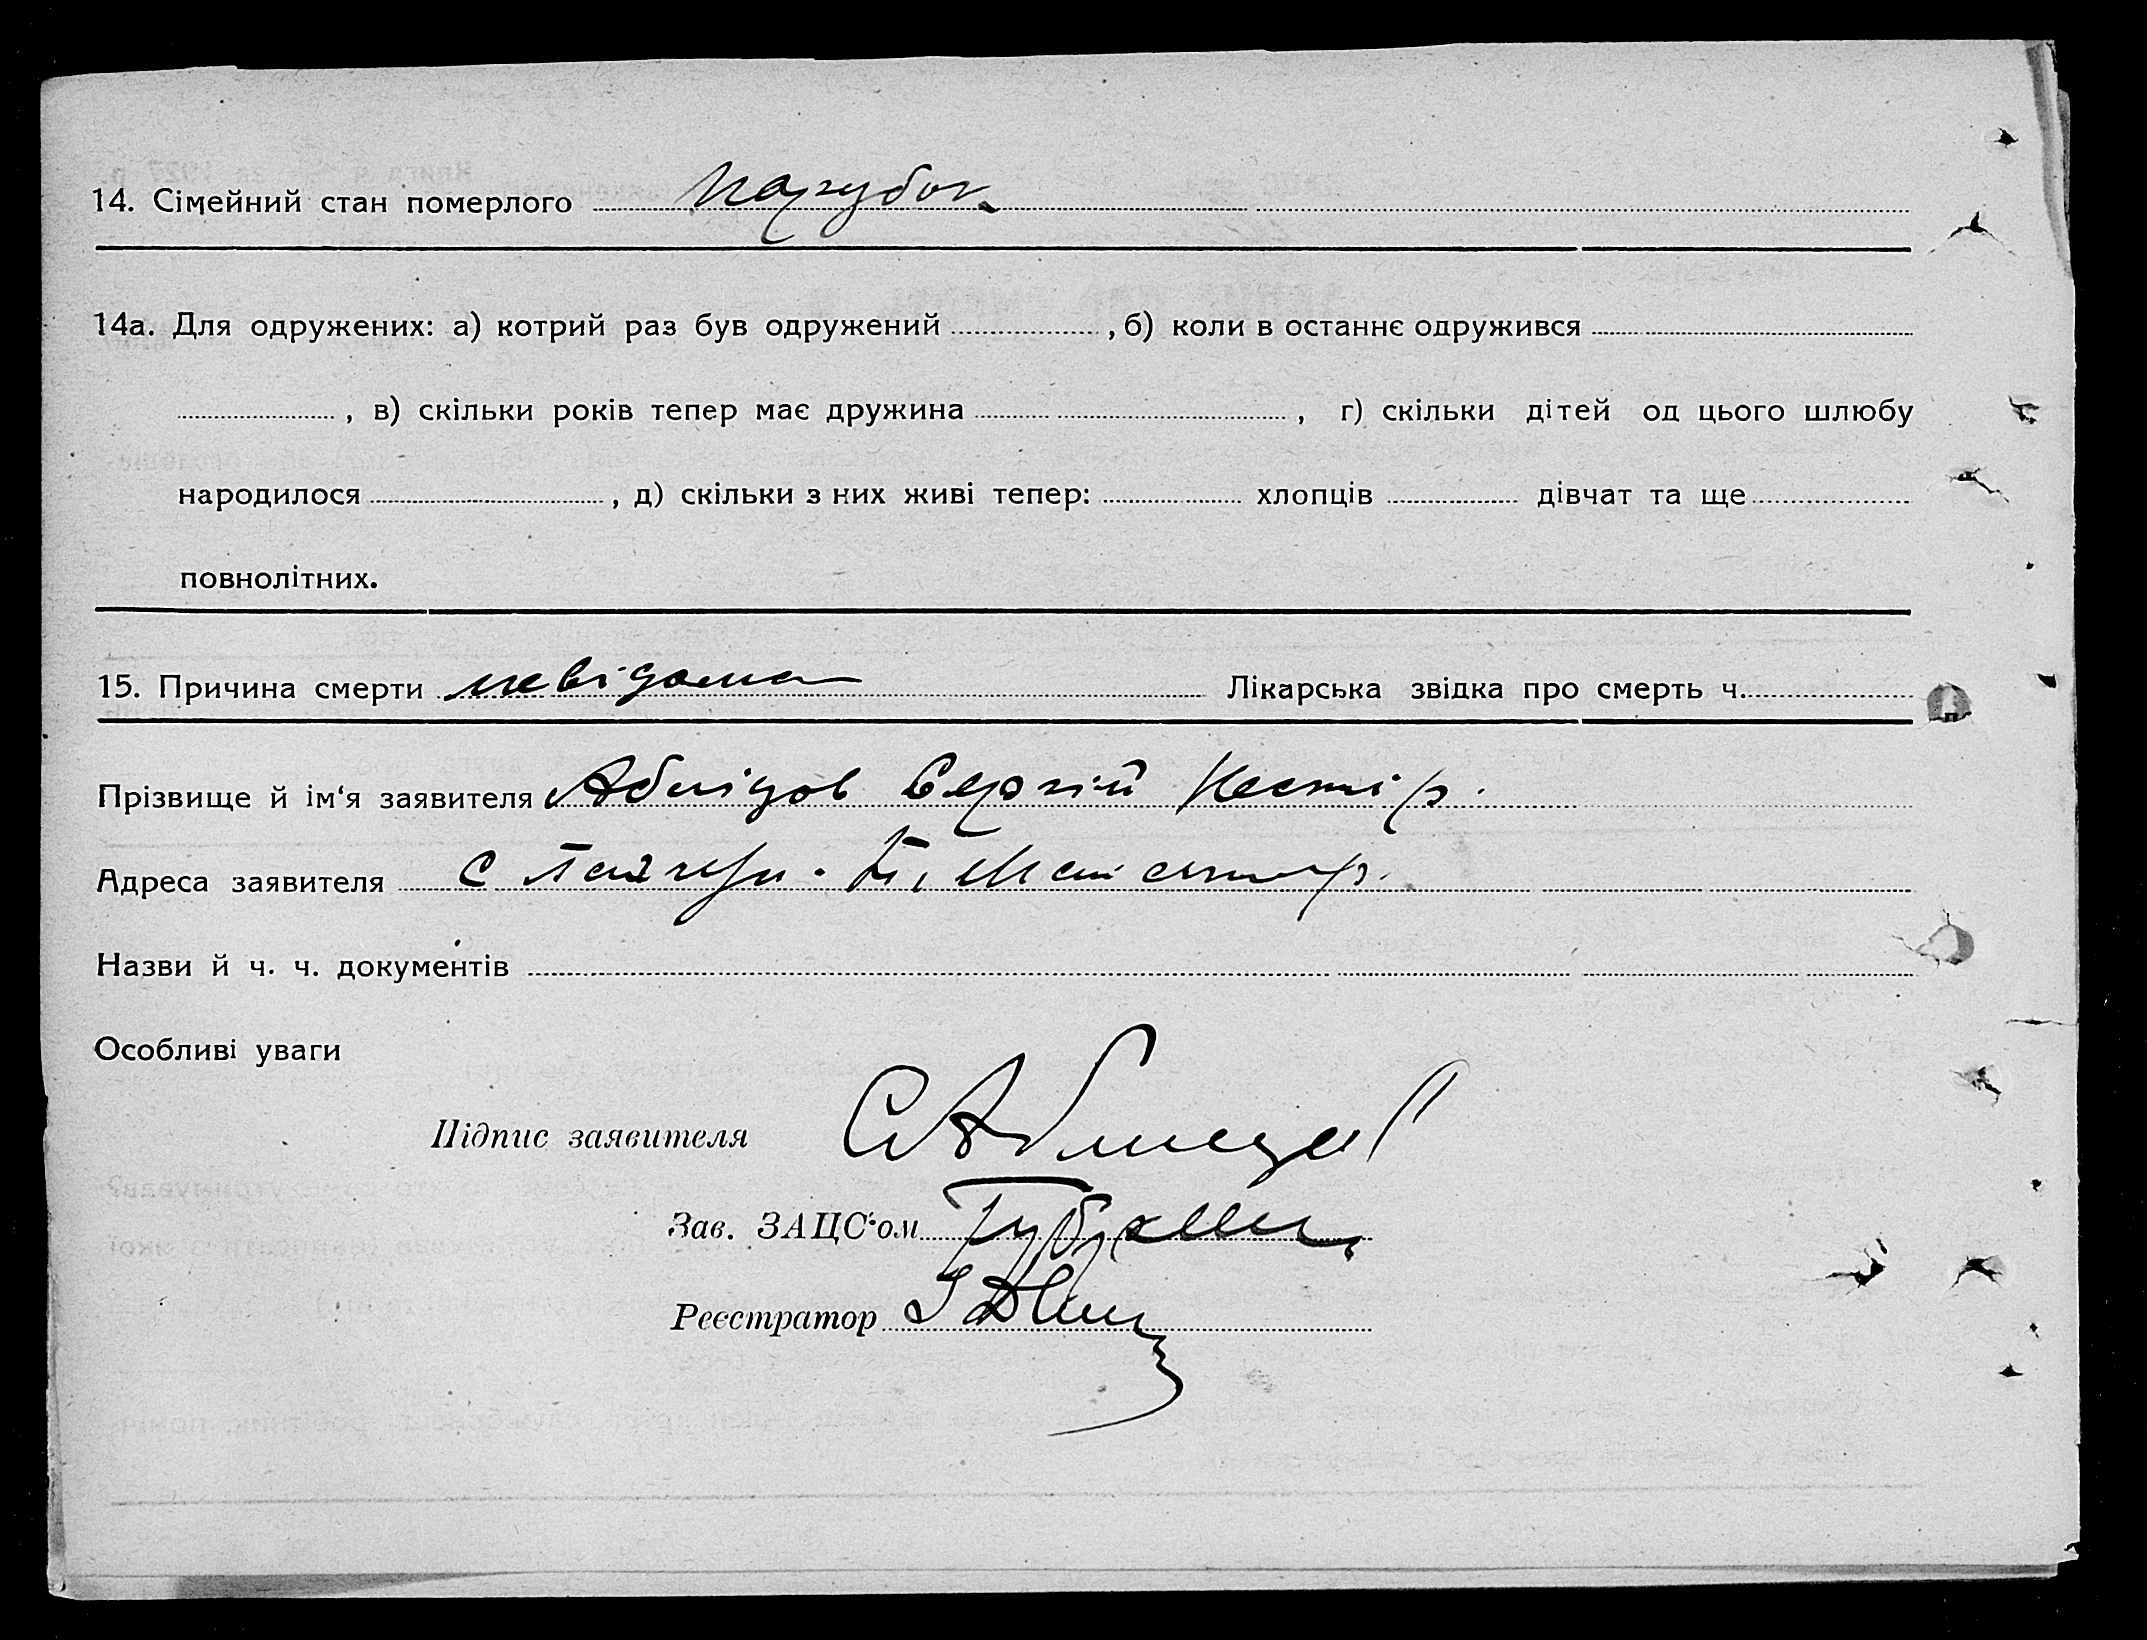 14. Сімейний стан померлого парубок
14а. Для одружених: а) котрий раз був одружений , б) коли в останнє одружився
, в) скільки років тепер має дружина , г) скільки дітей од цього шлюбу
народилося , д) скільки з них живі тепер: хлопців дівчат та ще
повнолітних.
15. Причина смерти невідома Лікарська звідка про смерть ч.
Прізвище й ім'я заявителя Абліцов Сергій Нестір.
Адреса заявителя с
Назви й ч. ч. документів
Особливі уваги
Підпис заявителя
Зав. ЗАЦС'ом
Реєстратор